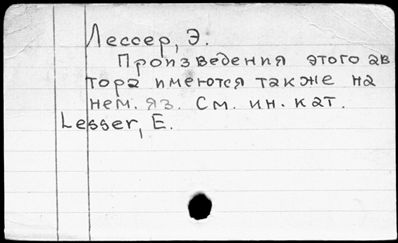 Лессер, Э.
Произведения этого ав
тора имеются также на
нем. яз. См. ин. кат.
Lesser, E.